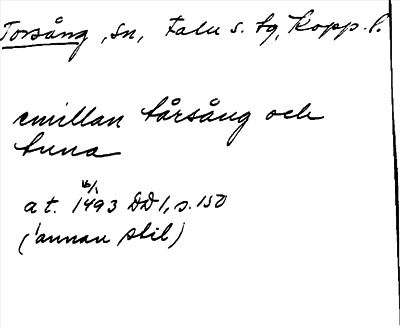 Torsång, sn, Falu s. tg, Kopp. l.
emillan tårsång och
tuna
16/1
at. 1493 DD1, s. 150
(annan stil)